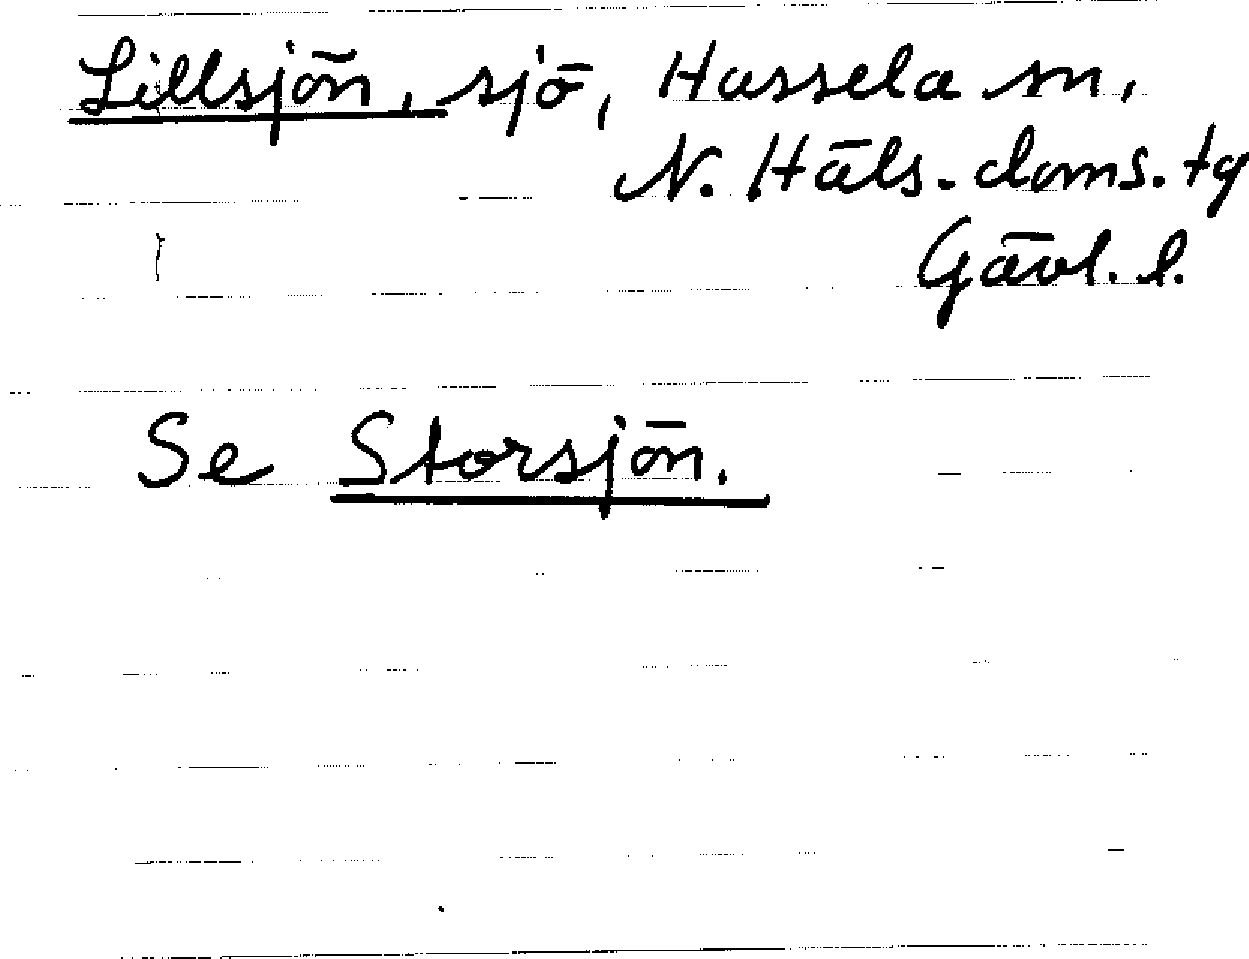 Lillsjön, sjö, Hassela sn,
N. Häls. doms. tg
Gävl. l.
Se Storsjön.